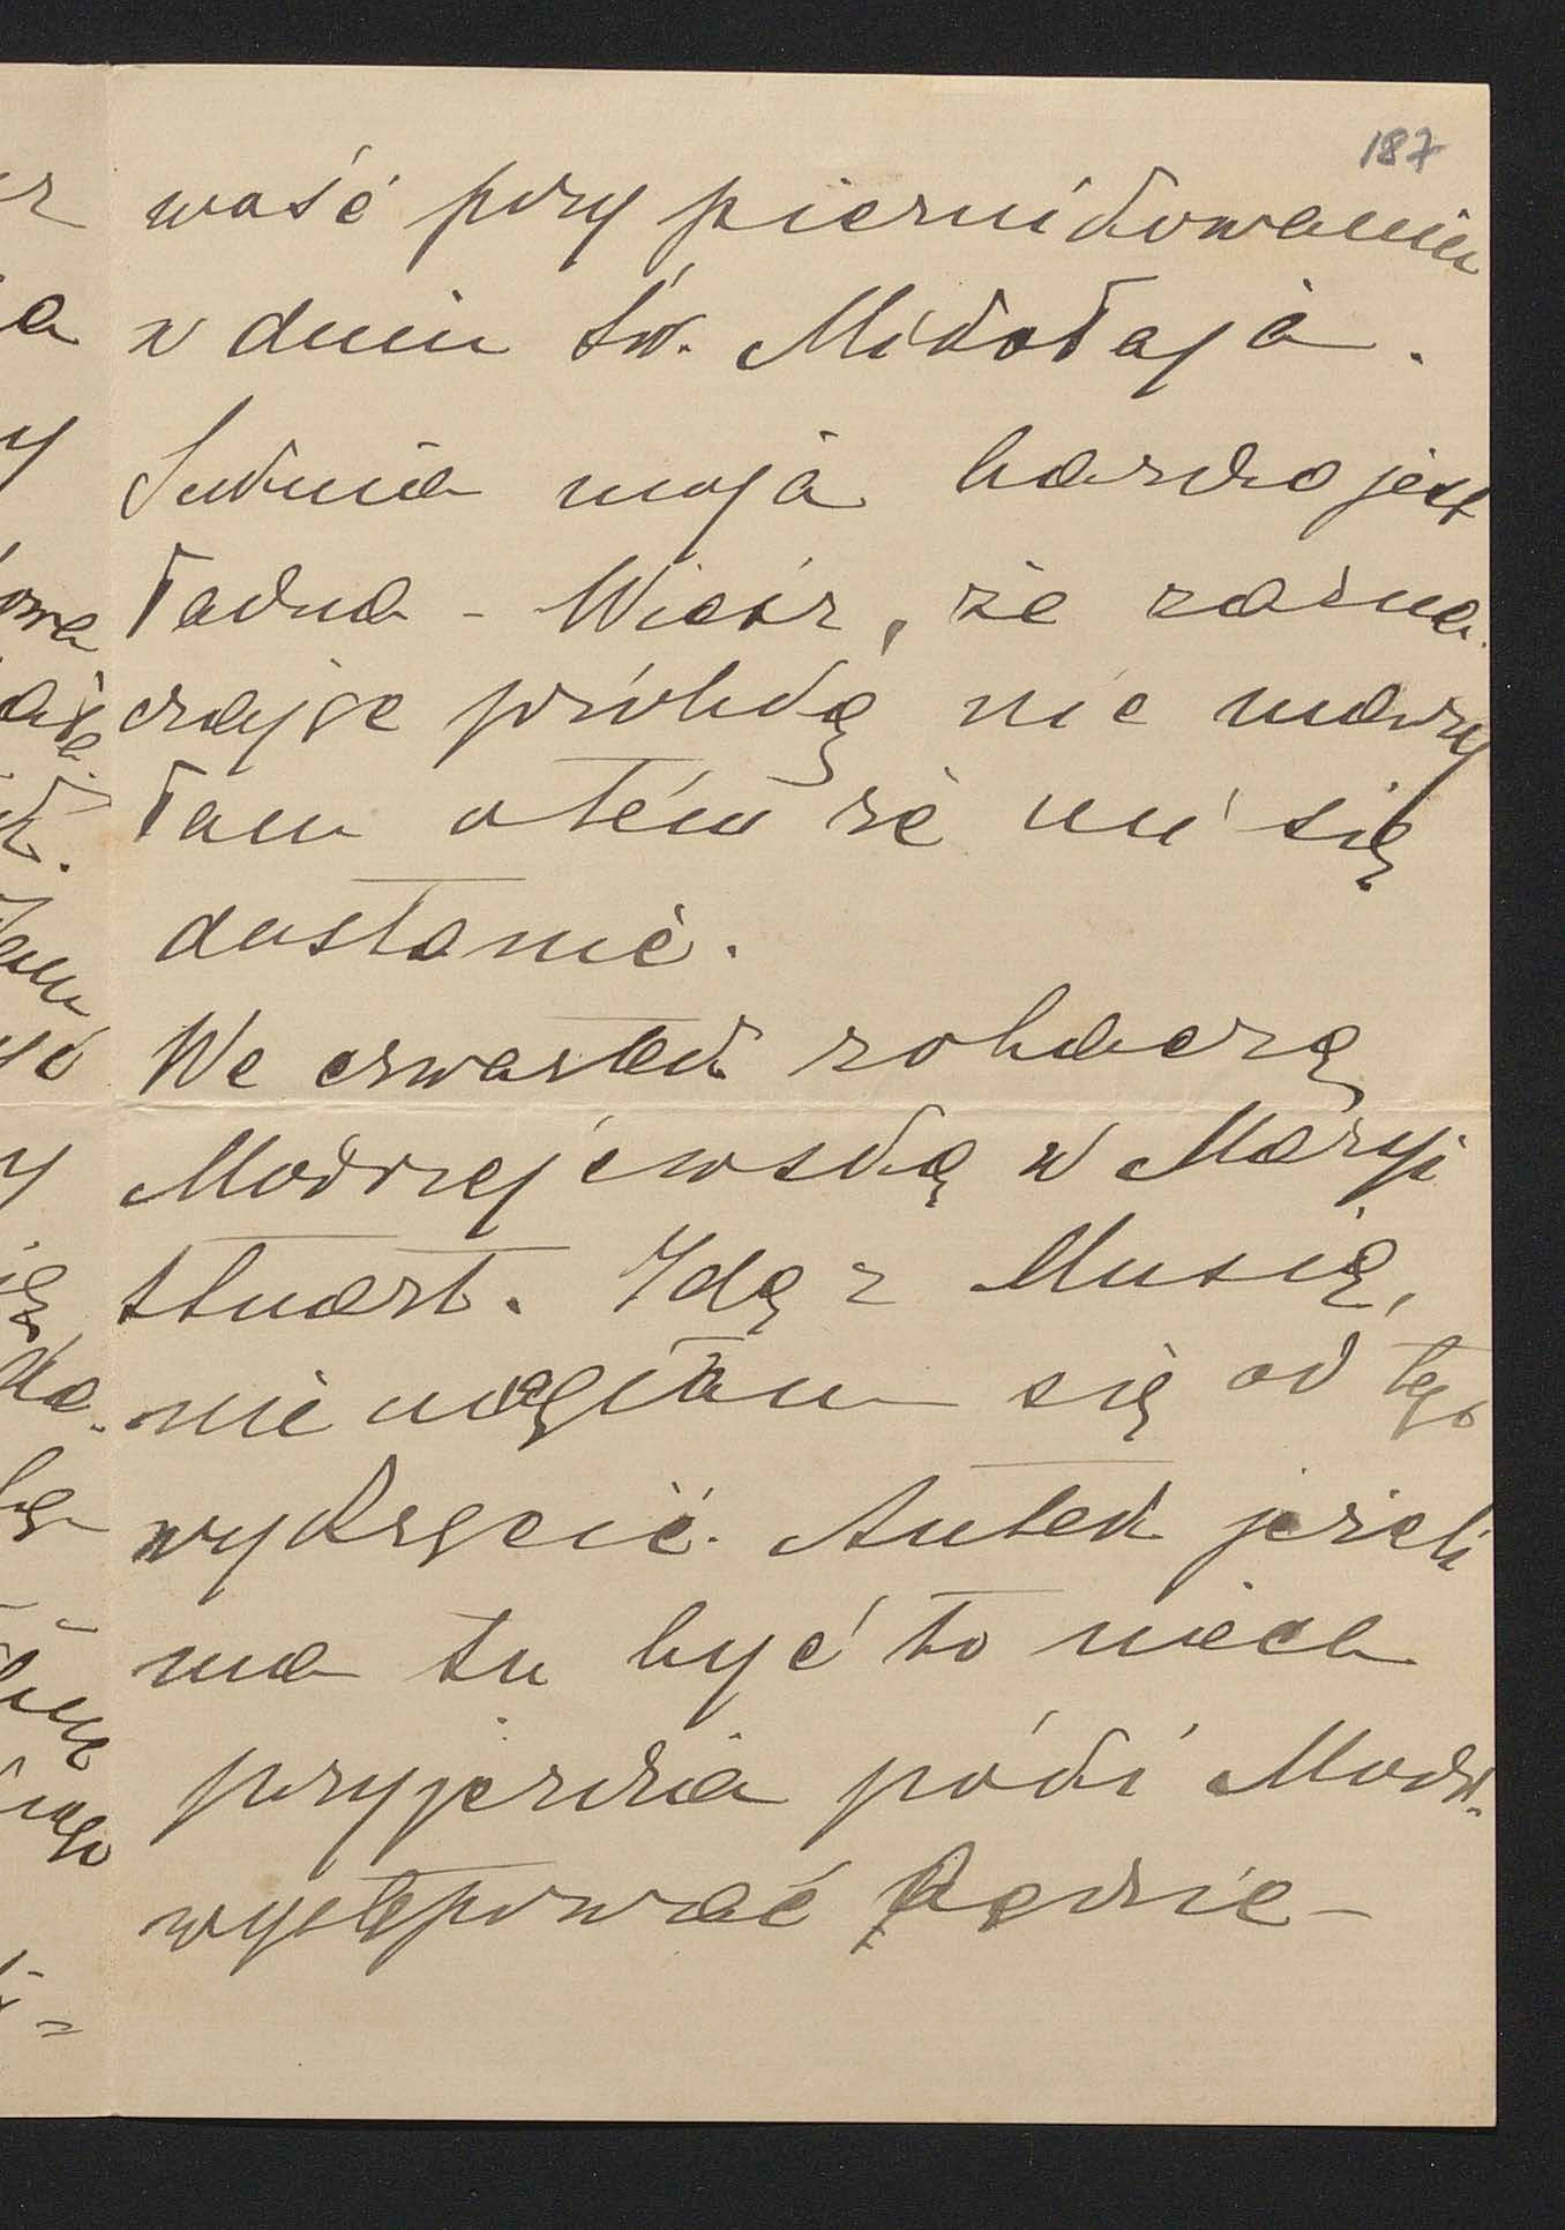 187
wość przy piernikowaniu
w dniu św. Mikołaja.
Suknia moja bardzo jest
ładna - Wiesz, że zazna
czając próbkę nie marzy
łam o tém że mi się
dostanie.
We czwartek zobaczę
Modrzejewską w Maryi
Stuart. Idę z Musią,
nie mogłam się od tego
wykręcić. Antek jeżeli
ma tu być to niech
przyjeżdża póki Modrz.
występować będzie -